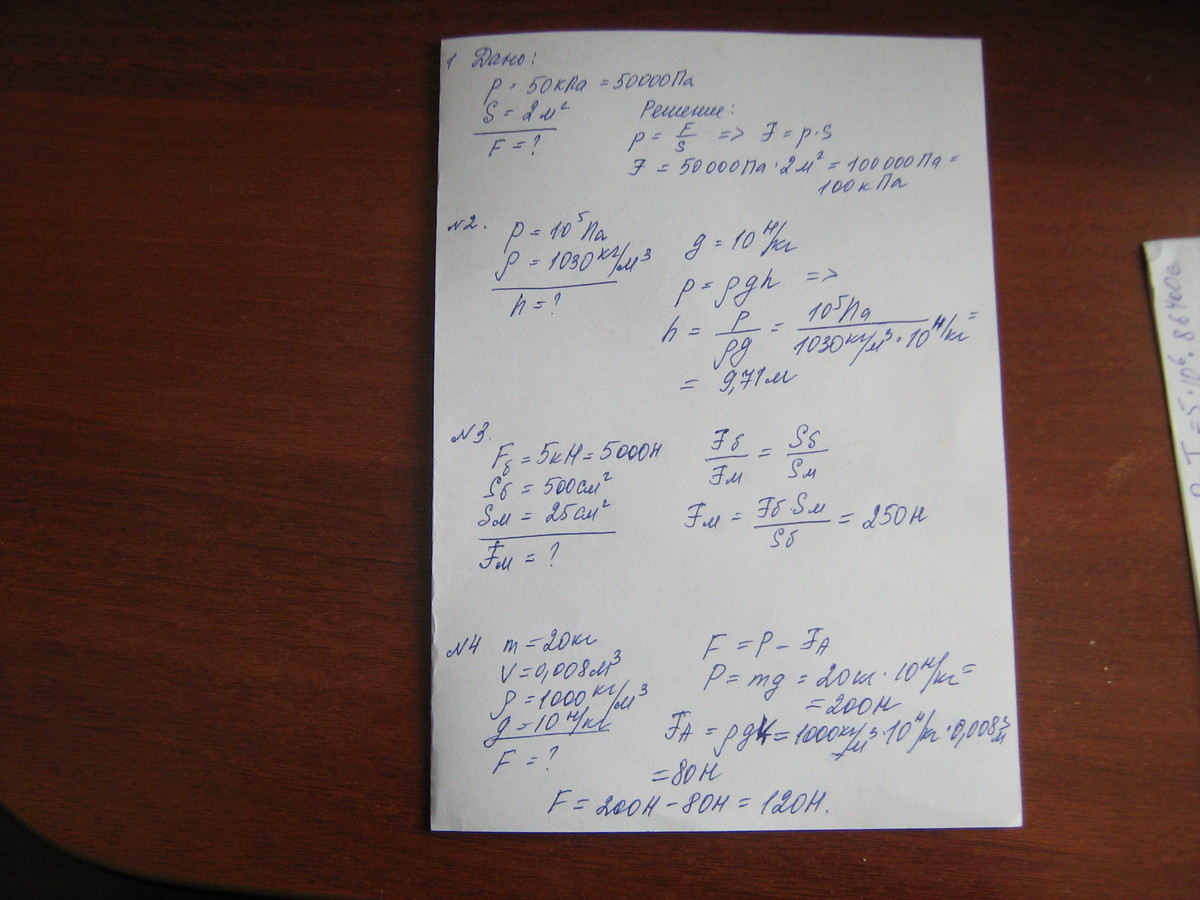 1 Дано:
p = 50 кПа = 50000 Па
S = 2 м²
F = ?
Решение:
p = F/S => F = p·S
F = 50000 Па · 2 м² = 100000 Па =
100 кПа
№2.
p = 10⁵ Па
ρ = 1030 кг/м³
h = ?
g = 10 Н/кг
p = ρgh =>
h = p/ρg = 10⁵ Па/1030 кг/м³ · 10 Н/кг =
= 9,71 м
№3.
Fб = 5 кН = 5000 Н
Sб = 500 см²
Sм = 25 см²
Fм = ?
Fб/Fм = Sб/Sм
Fм = Fб·Sм/Sб = 250 Н
№4
m = 20 кг
V = 0,008 м³
ρ = 1000 кг/м³
g = 10 Н/кг
F = ?
F = P - FA
P = mg = 20 кг · 10 Н/кг =
= 200 Н
FA = ρgV = 1000 кг/м³ · 10 Н/кг · 0,008 м³
= 80 Н
F = 200 Н - 80 Н = 120 Н.
= 5·10⁶·86400с